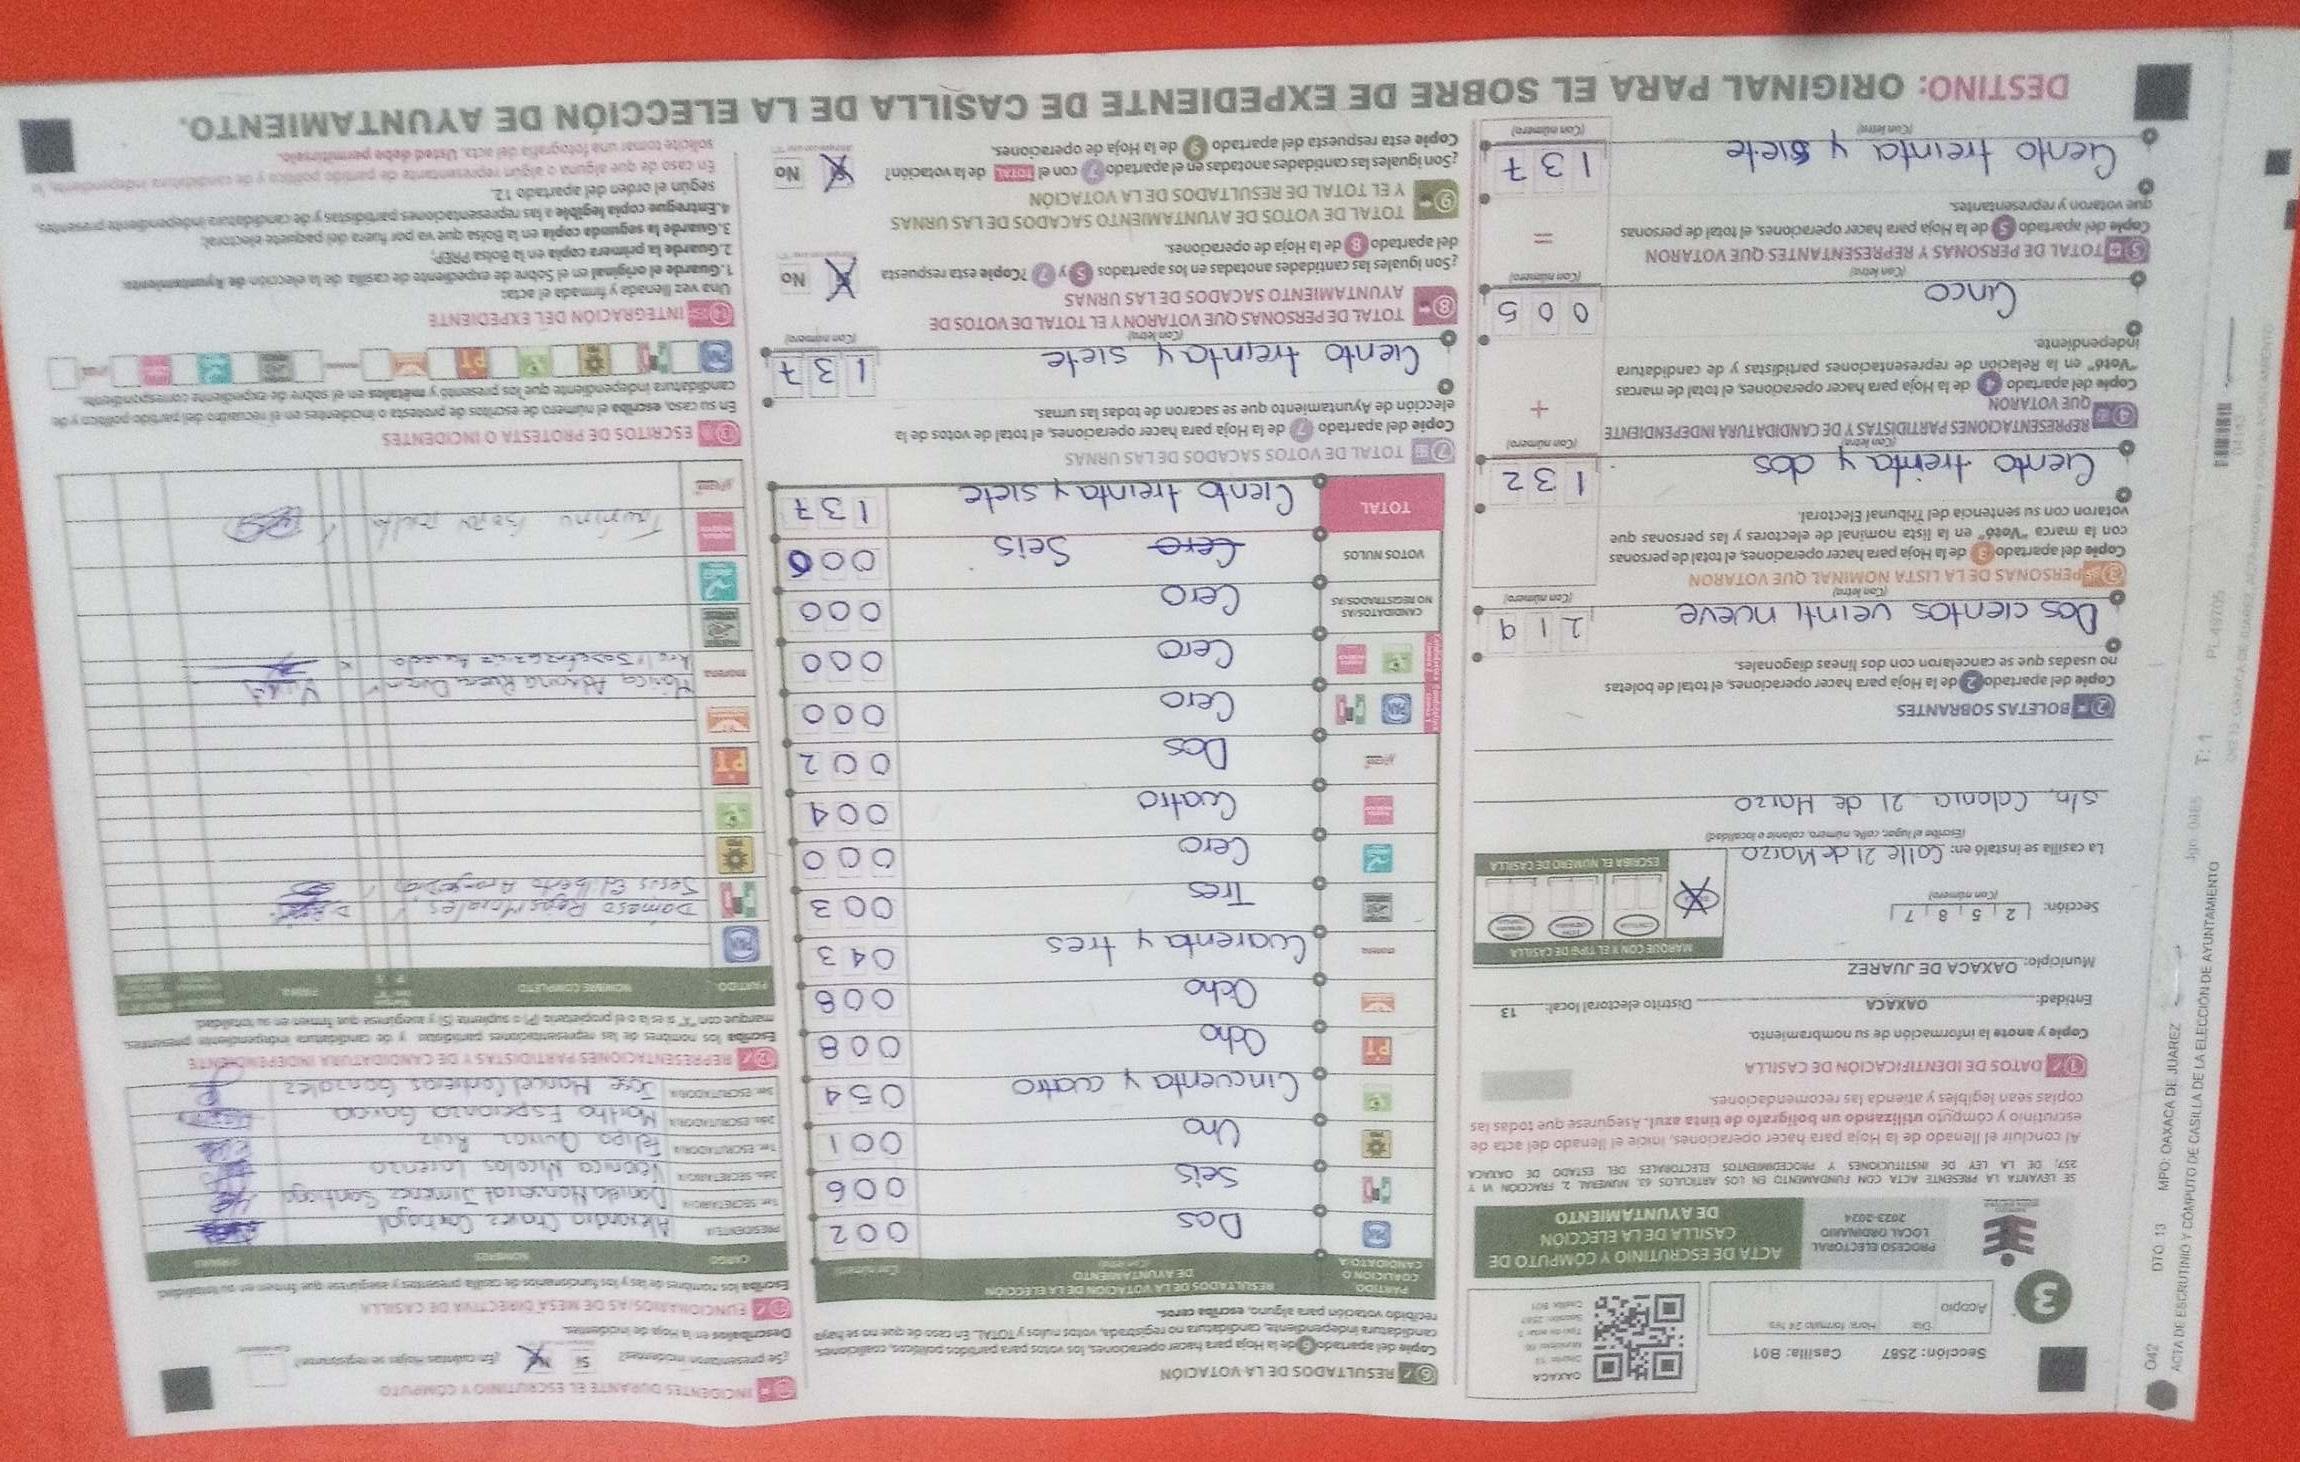 3
Sección: 2587 Casilla: B01
Acopio
Día Hora: formato 24 hrs
OAXACA
Sección: 2587
Casilla: B01
PROCESO ELECTORAL
LOCAL ORDINARIO
2023-2024
ACTA DE ESCRUTINIO Y CÓMPUTO DE
CASILLA DE LA ELECCIÓN
DE AYUNTAMIENTO
SE LEVANTA LA PRESENTE ACTA CON FUNDAMENTO EN LOS ARTÍCULOS 63, NUMERAL 2, FRACCIÓN VI Y
257, DE LA LEY DE INSTITUCIONES Y PROCEDIMIENTOS ELECTORALES DEL ESTADO DE OAXACA
Al concluir el llenado de la Hoja para hacer operaciones, inicie el llenado del acta de
escrutinio y cómputo utilizando un bolígrafo de tinta azul. Asegúrese que todas las
copias sean legibles y atienda las recomendaciones.
1 DATOS DE IDENTIFICACIÓN DE CASILLA
Copie y anote la información de su nombramiento.
Entidad: OAXACA Distrito electoral local: 13
Municipio: OAXACA DE JUAREZ
MARQUE CON X EL TIPO DE CASILLA
Sección: 2 5 8 7
(Con número)
ESCRIBA EL NÚMERO DE CASILLA
La casilla se instaló en: Calle 21 de Marzo
(Escriba el lugar, calle, número, colonia o localidad)
s/n, Colonia 21 de Marzo
2 BOLETAS SOBRANTES
Copie del apartado 2 de la Hoja para hacer operaciones, el total de boletas
no usadas que se cancelaron con dos líneas diagonales.
Dos cientos veinti nueve 2 1 9
(Con letra) (Con número)
3 PERSONAS DE LA LISTA NOMINAL QUE VOTARON
Copie del apartado 3 de la Hoja para hacer operaciones, el total de personas
con la marca "Votó" en la lista nominal de electores y las personas que
votaron con su sentencia del Tribunal Electoral.
Ciento treinta y dos 1 3 2
(Con letra) (Con número)
4 REPRESENTACIONES PARTIDISTAS Y DE CANDIDATURA INDEPENDIENTE
QUE VOTARON
Copie del apartado 4 de la Hoja para hacer operaciones, el total de marcas
"Votó" en la Relación de representaciones partidistas y de candidatura
independiente.
+
Cinco 0 0 5
(Con letra) (Con número)
5 TOTAL DE PERSONAS Y REPRESENTANTES QUE VOTARON
Copie del apartado 5 de la Hoja para hacer operaciones, el total de personas
que votaron y representantes.
=
Ciento treinta y siete 1 3 7
(Con letra) (Con número)
6 RESULTADOS DE LA VOTACIÓN
Copie del apartado 6 de la Hoja para hacer operaciones, los votos para partidos políticos, coaliciones,
candidatura independiente, candidatura no registrada, votos nulos y TOTAL. En caso de que no se haya
recibido votación para alguno, escriba ceros.
PARTIDO, COALICIÓN O CANDIDATO/A RESULTADOS DE LA VOTACIÓN DE LA ELECCIÓN DE AYUNTAMIENTO (Con letra) (Con número)
PAN Dos 0 0 2
PRI Seis 0 0 6
PRD Uno 0 0 1
Cincuenta y cuatro 0 5 4
PT Ocho 0 0 8
Ocho 0 0 8
morena Cuarenta y tres 0 4 3
Tres 0 0 3
Cero 0 0 0
Cuatro 0 0 4
Dos 0 0 2
PAN Cero 0 0 0
Cero 0 0 0
CANDIDATOS/AS NO REGISTRADOS/AS Cero 0 0 0
VOTOS NULOS Cero Seis 0 0 6
TOTAL Ciento treinta y siete 1 3 7
7 TOTAL DE VOTOS SACADOS DE LAS URNAS
Copie del apartado 7 de la Hoja para hacer operaciones, el total de votos de la
elección de Ayuntamiento que se sacaron de todas las urnas.
Ciento treinta y siete 1 3 7
(Con letra) (Con número)
8 TOTAL DE PERSONAS QUE VOTARON Y EL TOTAL DE VOTOS DE
AYUNTAMIENTO SACADOS DE LAS URNAS
¿Son iguales las cantidades anotadas en los apartados 5 y 7? Copie esta respuesta
del apartado 8 de la Hoja de operaciones.
No
9 TOTAL DE VOTOS DE AYUNTAMIENTO SACADOS DE LAS URNAS
Y EL TOTAL DE RESULTADOS DE LA VOTACIÓN
¿Son iguales las cantidades anotadas en el apartado 7 con el TOTAL de la votación?
Copie esta respuesta del apartado 9 de la Hoja de operaciones.
No
INCIDENTES DURANTE EL ESCRUTINIO Y CÓMPUTO
¿Se presentaron incidentes? Sí No ¿En cuántas Hojas se registraron?
Descríbalos en la Hoja de incidentes.
FUNCIONARIOS/AS DE MESA DIRECTIVA DE CASILLA
Escriba los nombres de las y los funcionarios de casilla presentes y asegúrese que firmen en su totalidad.
CARGO NOMBRES FIRMAS
PRESIDENTE/A Alexandra Chavez Carbajal
1er. SECRETARIO/A Daniela Monserrat Jimenez Santiago
2do. SECRETARIO/A Veronica Nicolas Lorenzo
1er. ESCRUTADOR/A Felipa Quiroz Ruiz
2do. ESCRUTADOR/A Martha Esperanza Garcia
3er. ESCRUTADOR/A Jose Manuel Contreras Gonzalez
12 REPRESENTACIONES PARTIDISTAS Y DE CANDIDATURA INDEPENDIENTE
Escriba los nombres de las representaciones partidistas y de candidatura independiente presentes,
marque con "X" si es la o el propietario (P) o suplente (S) y asegúrese que firmen en su totalidad.
PARTIDO NOMBRE COMPLETO FIRMA
PAN
PRD
PT
morena
13 ESCRITOS DE PROTESTA O INCIDENTES
En su caso, escriba el número de escritos de protesta o incidentes en el recuadro del partido político y de
candidatura independiente que los presentó y métalos en el sobre de expediente correspondiente.
14 INTEGRACIÓN DEL EXPEDIENTE
Una vez llenada y firmada el acta:
1. Guarde el original en el Sobre de expediente de casilla de la elección de Ayuntamiento.
2. Guarde la primera copia en la Bolsa PREP;
3. Guarde la segunda copia en la Bolsa que va por fuera del paquete electoral;
4. Entregue copia legible a las representaciones partidistas y de candidatura independiente presentes,
según el orden del apartado 12.
En caso de que alguna o algún representante de partido político y de candidatura independiente, le
solicite tomar una fotografía del acta. Usted debe permitírselo.
DESTINO: ORIGINAL PARA EL SOBRE DE EXPEDIENTE DE CASILLA DE LA ELECCIÓN DE AYUNTAMIENTO.
042 DTO: 13 MPO: OAXACA DE JUAREZ T: 1
ACTA DE ESCRUTINIO Y CÓMPUTO DE CASILLA DE LA ELECCIÓN DE AYUNTAMIENTO